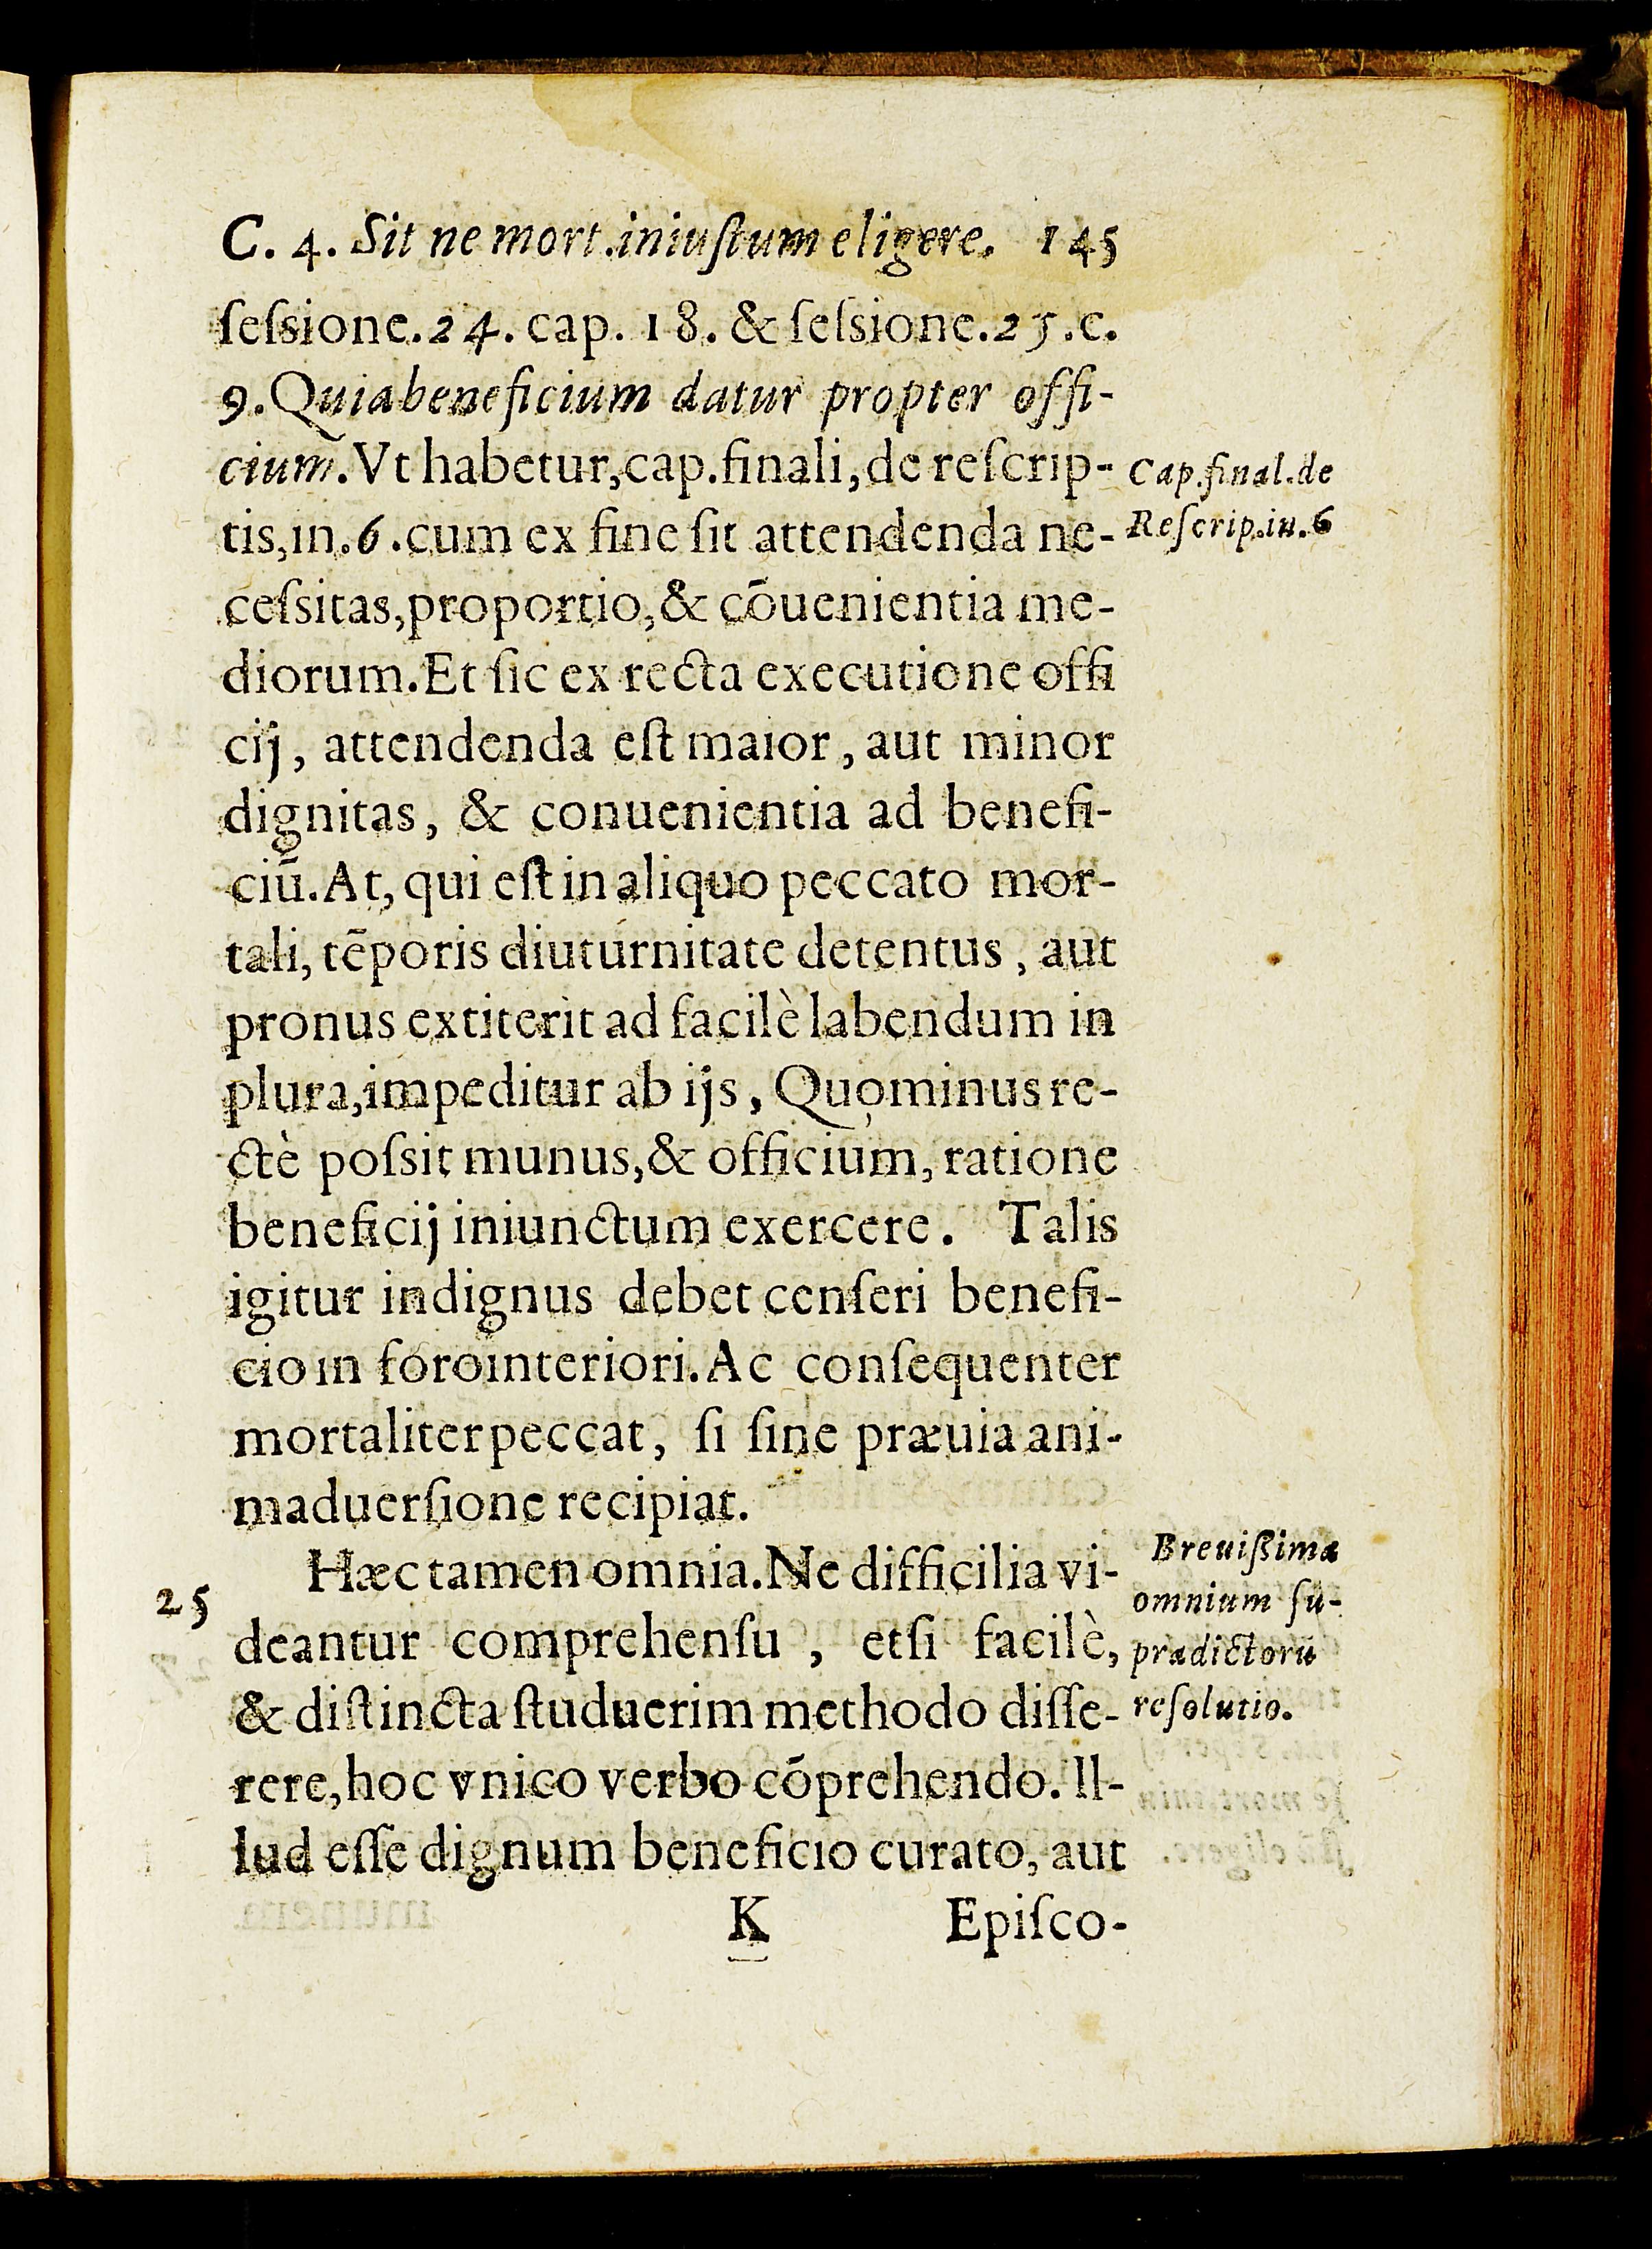 C. 4. Sit ne mort.iniuſtum eligere. 145
ſeſsione.24. cap. 18. & ſeſsione.25.c.
9. Quia beneficium datur propter offi-
cium. Vt habetur,cap.finali,de reſcrip-
Cap.final.de
tis,in.6.cum ex fine ſit attendenda ne-
Reſcrip.in.6
ceſsitas,proportio,& cōuenientia me-
diorum.Et ſic ex recta executione offi
cij, attendenda eſt maior, aut minor
dignitas, & conuenientia ad benefi-
ciū.At, qui eſt in aliquo peccato mor-
tali, tēporis diuturnitate detentus, aut
pronus extiterit ad facilè labendum in
plura,impeditur ab ijs, Quominus re-
ctè poſsit munus,& officium, ratione
beneficij iniunctum exercere. Talis
igitur indignus debet cenſeri benefi-
cio in foro interiori.Ac conſequenter
mortaliter peccat, ſi ſine præuia ani-
maduerſione recipiat.
Hæc tamen omnia.Ne difficilia vi-
Breuiſsima
25
omnium ſu-
deantur comprehenſu, etſi facilè,
prædictorū
& diſtincta ſtuduerim methodo diſſe-
reſolutio.
rere,hoc vnico verbo cōprehendo. Il-
lud eſſe dignum beneficio curato, aut
K Epiſco-